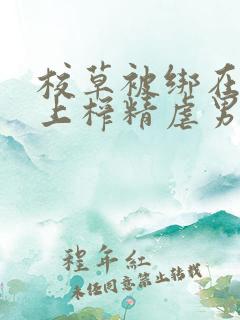 校草被绑在
上榨精虐男
程年红
未经同意禁止转载